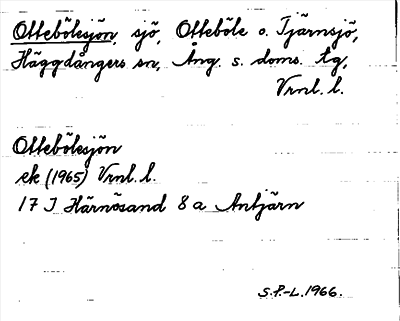 Ottebölesjön, sjö, Otteböle o. Tjärnsjö,
Häggdångers sn, Ång. s. doms. tg,
Vrnl. l.
Ottebölesjön
ek (1965) Vrnl. l.
17 J Härnösand 8 a Antjärn
S.P.-L. 1966.